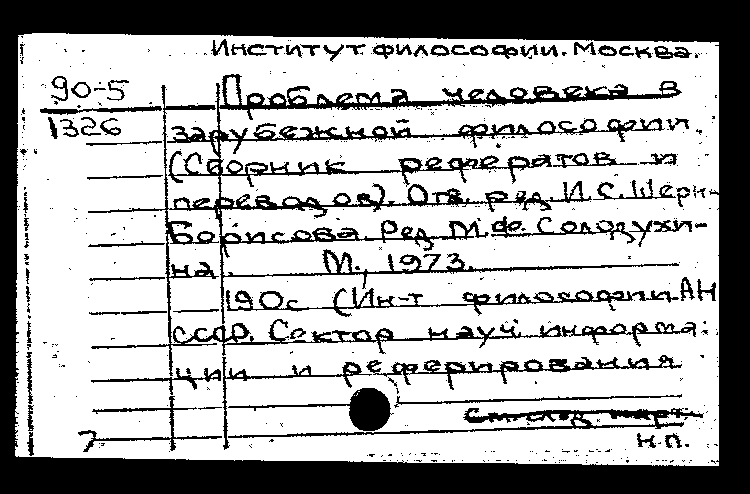 Институт философии. Москва.
90-5 Проблема человека в
1326 зарубежной философии.
(Сборник рефератов и
переводов). Отв. ред. И.С. Шерн-
Борисова. Ред. М.Ф. Солодухи-
на. М., 1973.
190с (Ин-т философии АН
СССР. Сектор науч. информа-
ции и реферирования
См. след. карт.
7 н.п.